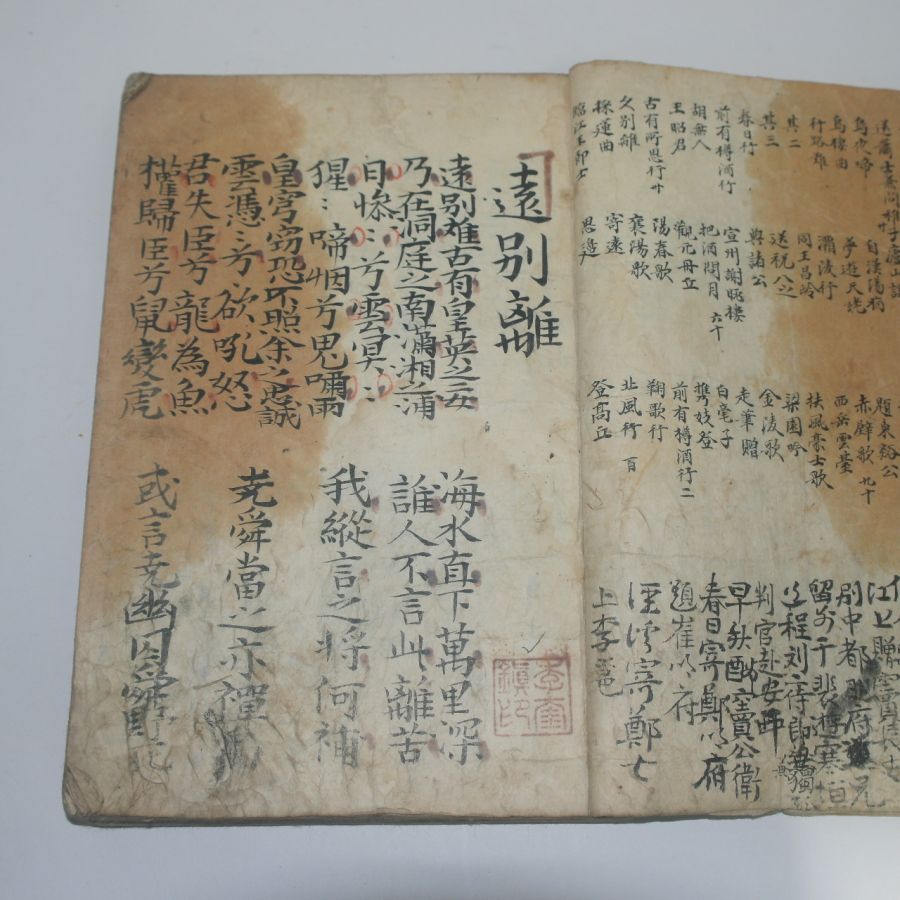 烏夜啼
烏棲曲
行路難
其二
其三
春日行
前有樽酒行
胡無人
王昭君
古有所思行 卄
久別離
採蓮曲
臨江王節士
自漢陽病
夢遊天姥
灞陵行
同王昌岭
送祝八之
與諸公
宣州謝眺樓
把酒問月 六十
觀元丹丘
陽春歌
襄陽歌
寄遠
思邊
題東谿公
赤壁歌 九十
西岳雲臺
扶風豪士歌
梁園吟
金陵歌
走筆贈
白毫子
携妓登
前有樽酒行二
鞠歌行
北風行 百
登高丘
江上贈竇長史
別中都明府兄
判官赴安西
早秋酬竇公衛
春日寄鄭明府
題崔明府
涇溪寄鄭七
上李邕
遠別離
遠別难古有皇英之女 海水直下萬里深
乃在洞庭之南瀟湘之浦 誰人不言此離苦
日慘〻兮雲冥〻
猩〻啼烟兮鬼嘯雨 我縱言之將何補
皇穹窃恐不照余之忠誠
雲憑〻兮欲吼怒 堯舜當之亦禪禹
君失臣兮龍為魚
權歸臣兮鼠變虎 或言堯幽囚舜野死
李奎鎮印